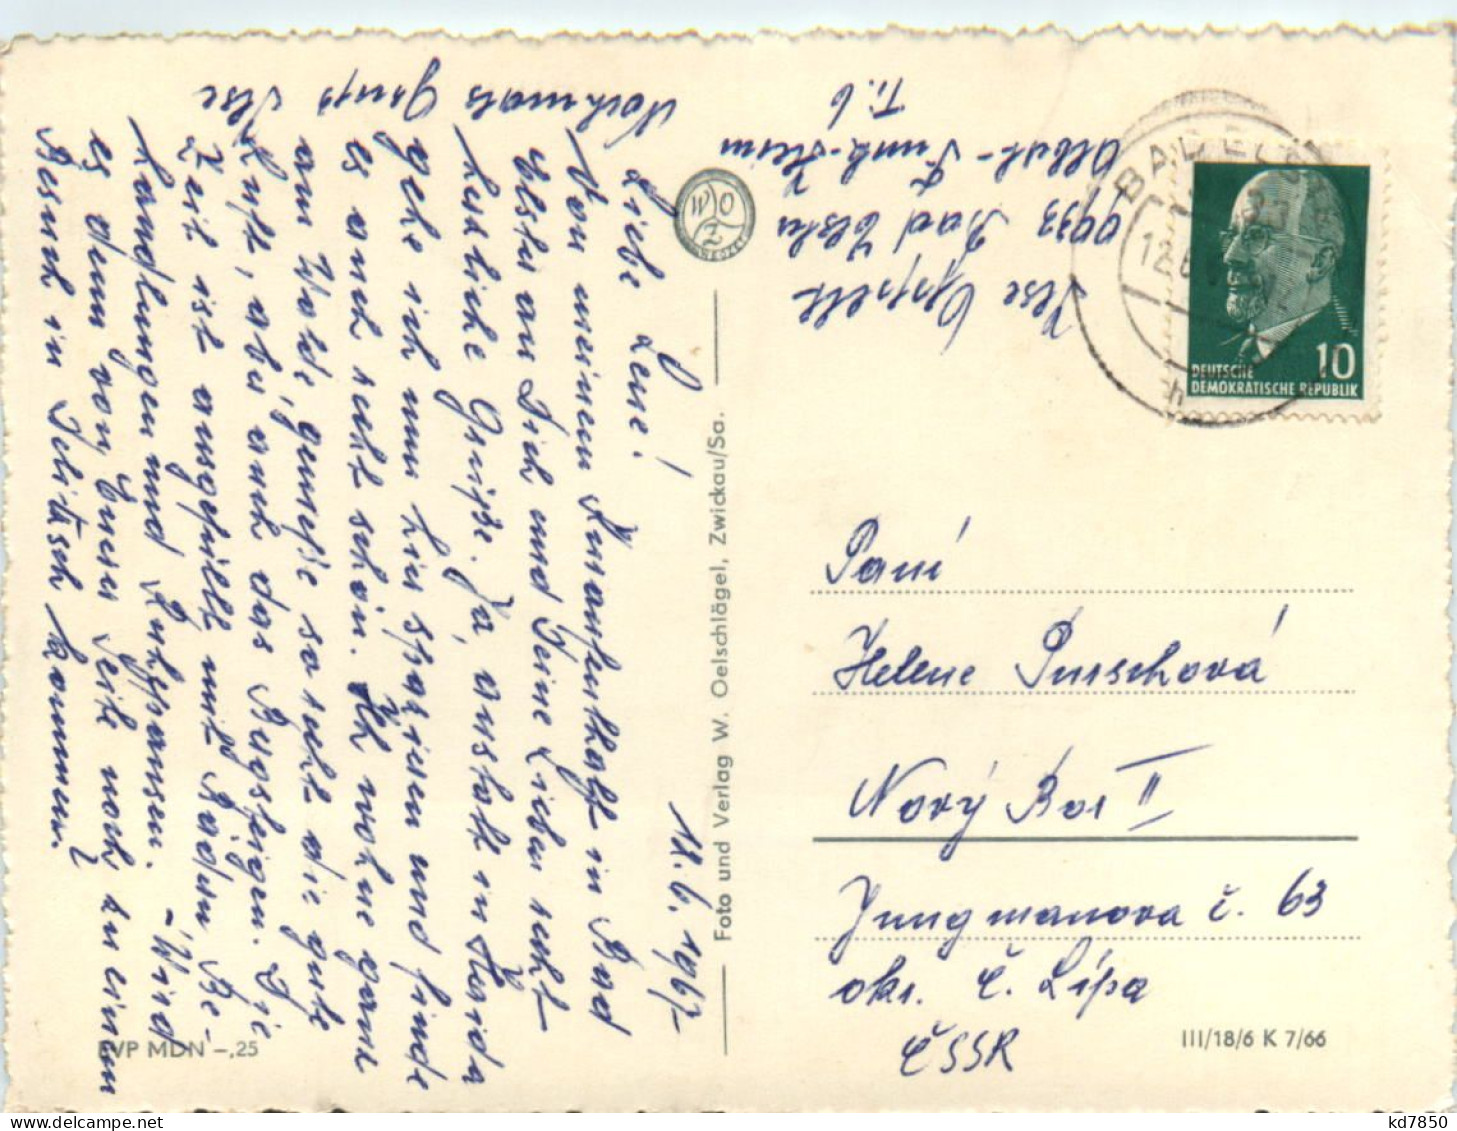 11.6.1967
Liebe Lene!
Von meinem Kuraufenthalt in Bad
Elster an Dich und Deine Lieben recht
herzliche Grüße. Ja, anstatt in Haida
gehe ich nun hier spazieren und finde
es auch recht schön. Ich wohne ganz
am Walde, genieße so recht die gute
Luft, aber auch das Bergsteigen. Die
Zeit ist ausgefüllt mit Bädern, Be-
handlungen und Ruhepausen. - Wird
es denn von Eurer Seite noch zu einem
Besuch in kommen?
Nochmals Gruß Ilse
Ilse
9933 Bad Elster
Albert-Funk-Heim
Ti. 6
WOZ
Foto und Verlag W. Oelschlägel, Zwickau/Sa.
BAD ELSTER
12.6.
DEUTSCHE
DEMOKRATISCHE REPUBLIK
10
Paní
Helene Purschová
Nový Bor II
Jungmanova č. 63
okr. Č. Lípa
ČSSR
EVP MDN -,25
III/18/6 K 7/66
kd7850